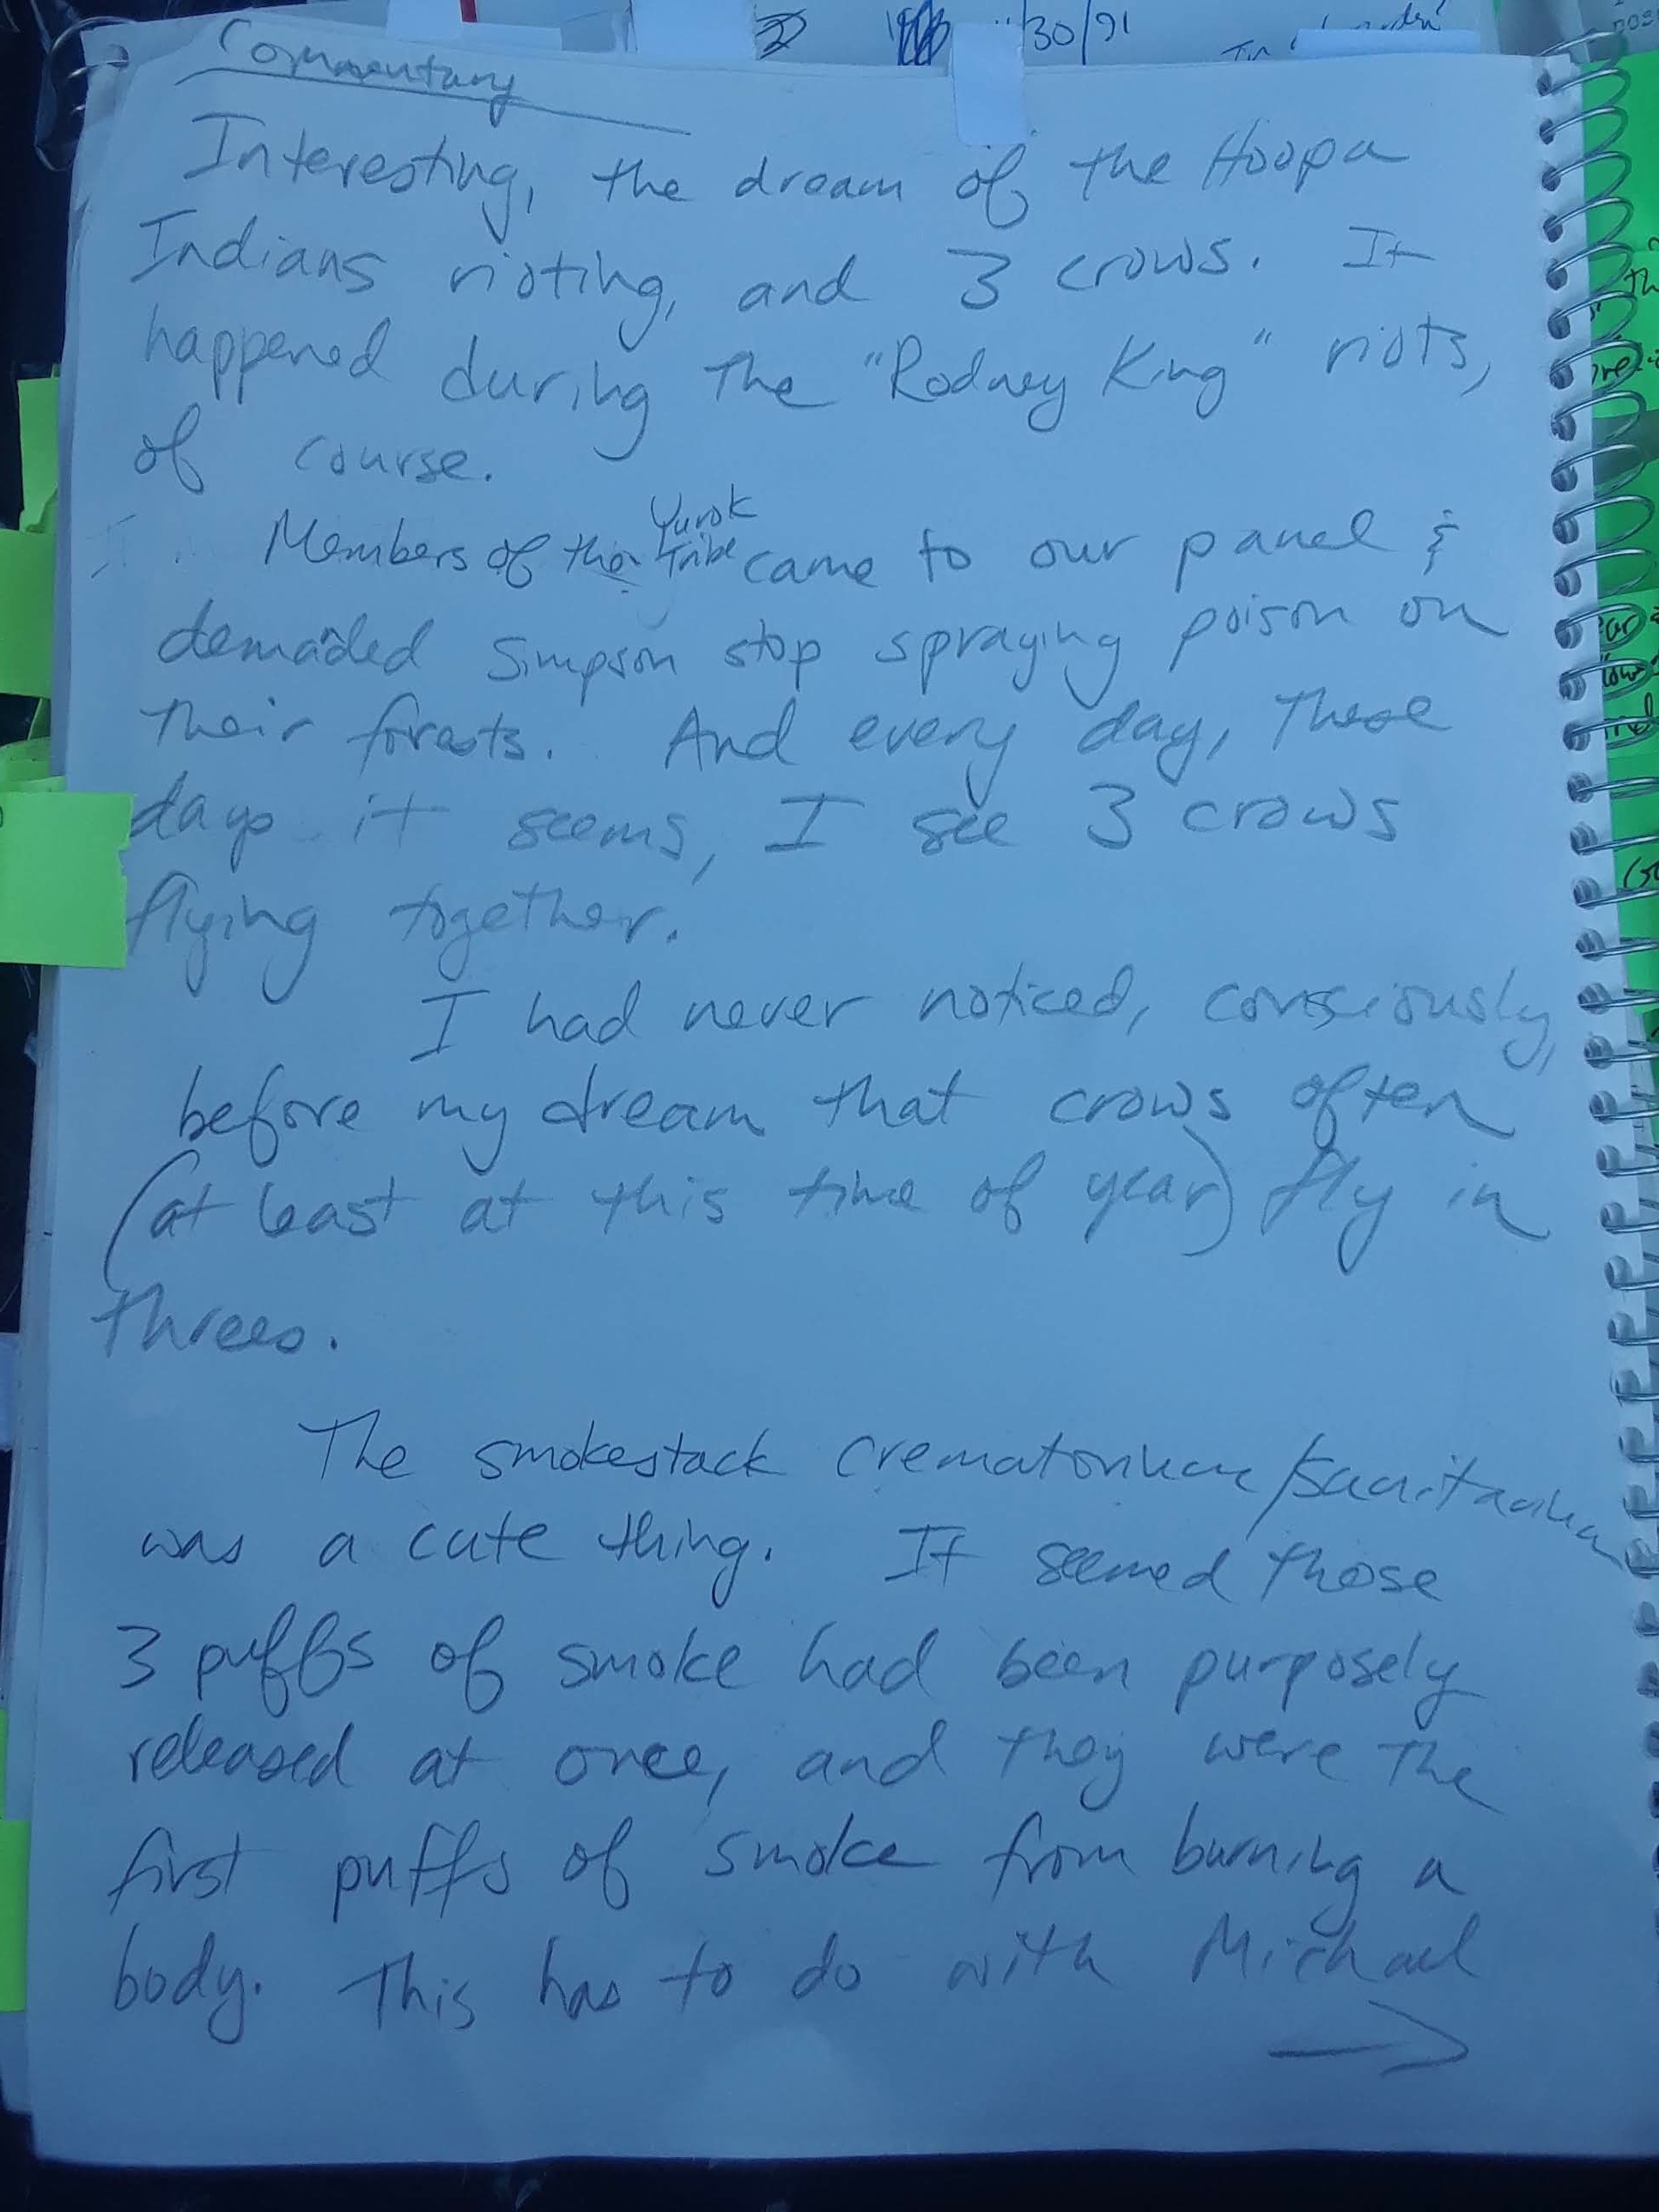 11/30/91
Commentary
Interesting, the dream of the Hoopa
Indians rioting, and 3 crows. It
happened during the "Rodney King" riots,
of course.
Yurok
Members of the Tribe came to our panel &
demanded Simpson stop spraying poison on
their forests. And every day, these
days it seems, I see 3 crows
flying together.
I had never noticed, consciously,
before my dream that crows often
(at least at this time of year) fly in
threes.
The smokestack crematorium/sanitarium
was a cute thing. It seemed those
3 puffs of smoke had been purposely
released at once, and they were the
first puffs of smoke from burning a
body. This has to do with Michael
→